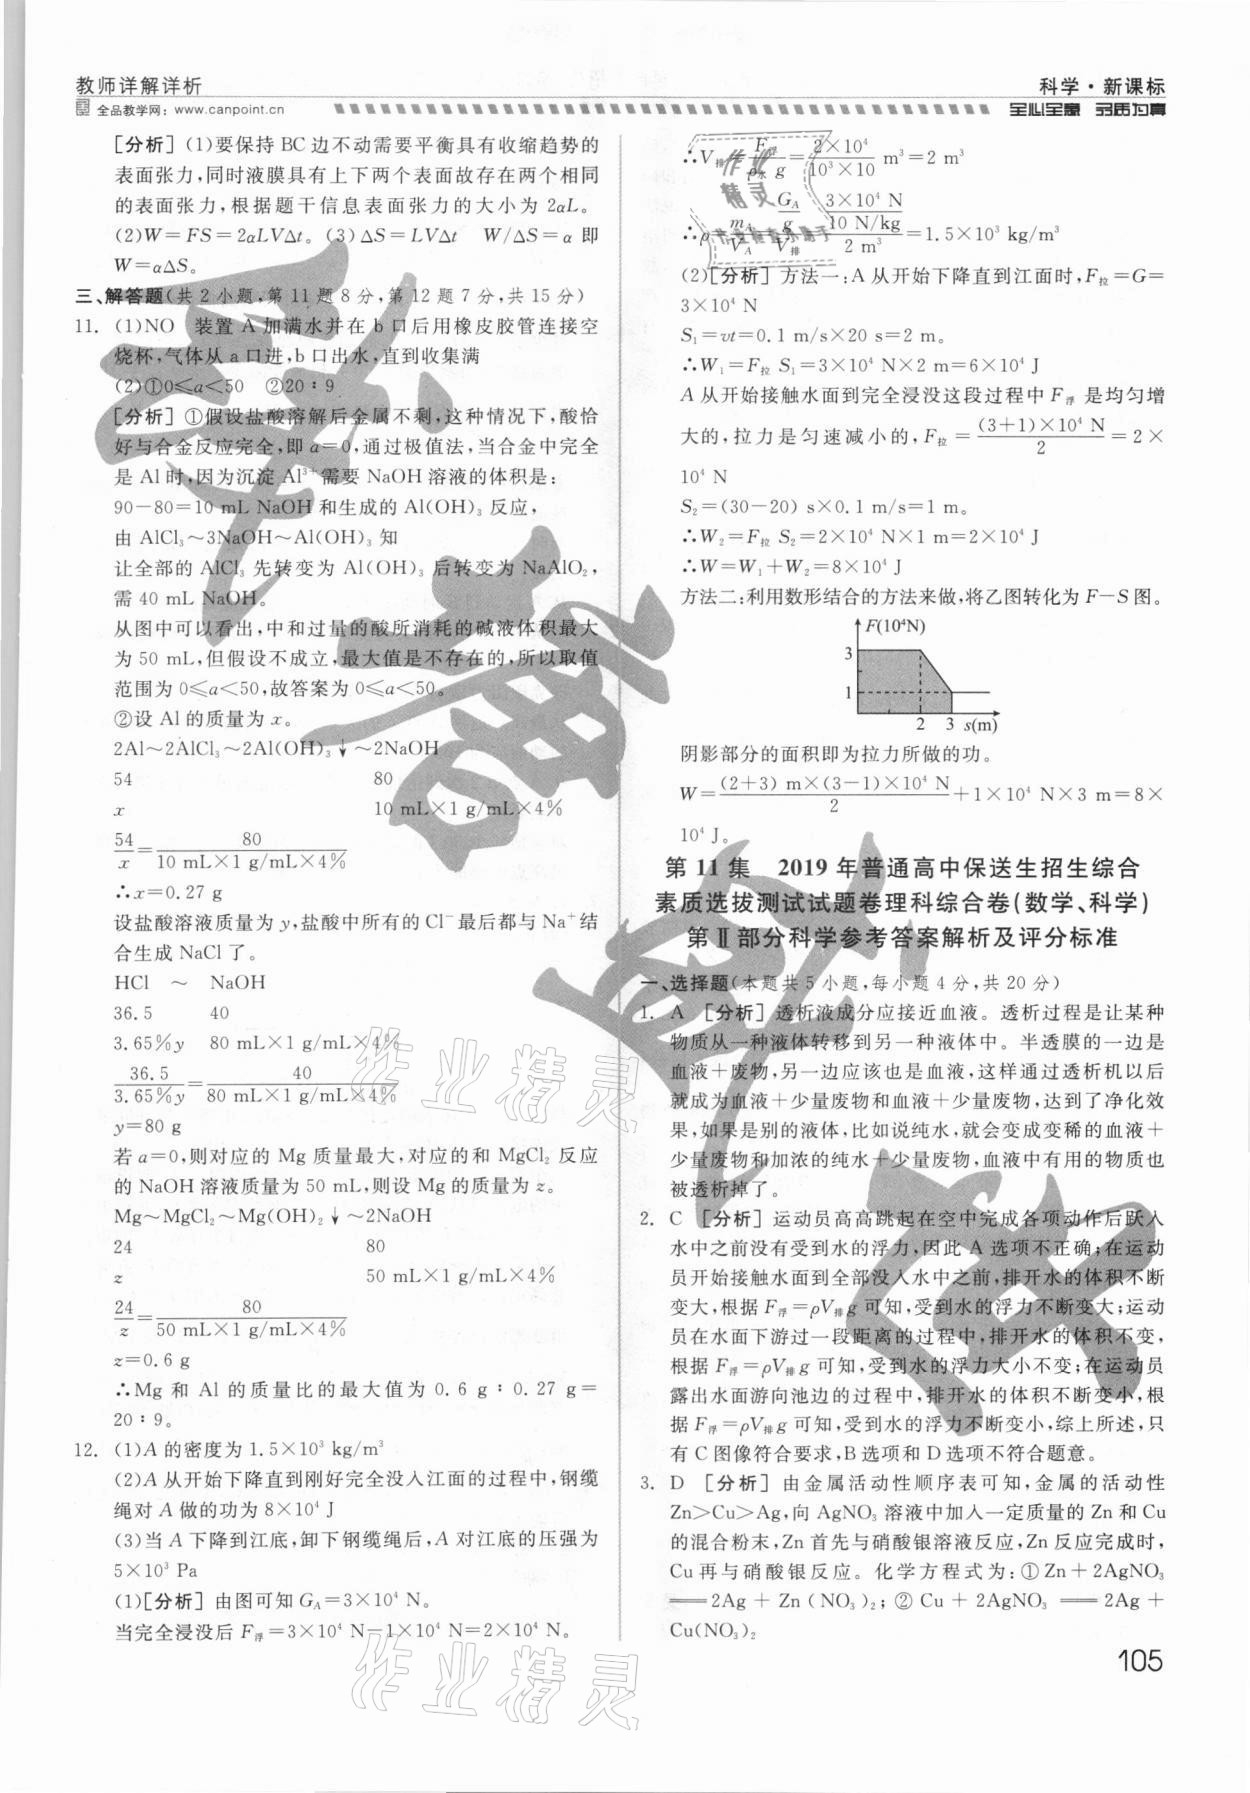 教师详解详析
全品教学网：www.canpoint.cn
科学·新课标
全心全意 多质为真
[分析] (1)要保持 BC 边不动需要平衡具有收缩趋势的
表面张力,同时液膜具有上下两个表面故存在两个相同
的表面张力,根据题干信息表面张力的大小为 2αL。
(2)W=FS=2αLVΔt。(3)ΔS=LVΔt W/ΔS=α 即
W=αΔS。
三、解答题(共 2 小题,第 11 题 8 分,第 12 题 7 分,共 15 分)
11. (1)NO 装置 A 加满水并在 b 口后用橡皮胶管连接空
烧杯,气体从 a 口进,b 口出水,直到收集满
(2)①0≤a<50 ②20∶9
[分析] ①假设盐酸溶解后金属不剩,这种情况下,酸恰
好与合金反应完全,即 a=0,通过极值法,当合金中完全
是 Al 时,因为沉淀 Al³⁺需要 NaOH 溶液的体积是:
90−80=10 mL NaOH 和生成的 Al(OH)₃ 反应,
由 AlCl₃～3NaOH～Al(OH)₃ 知
让全部的 AlCl₃ 先转变为 Al(OH)₃ 后转变为 NaAlO₂,
需 40 mL NaOH。
从图中可以看出,中和过量的酸所消耗的碱液体积最大
为 50 mL,但假设不成立,最大值是不存在的,所以取值
范围为 0≤a<50,故答案为 0≤a<50。
②设 Al 的质量为 x。
2Al～2AlCl₃～2Al(OH)₃↓～2NaOH
54 80
x 10 mL×1 g/mL×4%
54/x=80/(10 mL×1 g/mL×4%)
∴x=0.27 g
设盐酸溶液质量为 y,盐酸中所有的 Cl⁻最后都与 Na⁺结
合生成 NaCl 了。
HCl ～ NaOH
36.5 40
3.65%y 80 mL×1 g/mL×4%
36.5/(3.65%y)=40/(80 mL×1 g/mL×4%)
y=80 g
若 a=0,则对应的 Mg 质量最大,对应的和 MgCl₂ 反应
的 NaOH 溶液质量为 50 mL,则设 Mg 的质量为 z。
Mg～MgCl₂～Mg(OH)₂↓～2NaOH
24 80
z 50 mL×1 g/mL×4%
24/z=80/(50 mL×1 g/mL×4%)
z=0.6 g
∴Mg 和 Al 的质量比的最大值为 0.6 g∶0.27 g=
20∶9。
12. (1)A 的密度为 1.5×10³ kg/m³
(2)A 从开始下降直到刚好完全没入江面的过程中,钢缆
绳对 A 做的功为 8×10⁴ J
(3)当 A 下降到江底,卸下钢缆绳后,A 对江底的压强为
5×10³ Pa
(1)[分析] 由图可知 G_A=3×10⁴ N。
当完全浸没后 F浮=3×10⁴ N−1×10⁴ N=2×10⁴ N。
∴V排=F浮/(ρ水g)=(2×10⁴)/(10³×10) m³=2 m³
∴ρ m_A/V_A (G_A/g)/V排 (3×10⁴ N/10 N/kg)/(2 m³)=1.5×10³ kg/m³
(2)[分析] 方法一:A 从开始下降直到江面时,F拉=G=
3×10⁴ N
S₁=vt=0.1 m/s×20 s=2 m。
∴W₁=F拉 S₁=3×10⁴ N×2 m=6×10⁴ J
A 从开始接触水面到完全浸没这段过程中 F浮 是均匀增
大的,拉力是匀速减小的,F拉=((3+1)×10⁴ N)/2=2×
10⁴ N
S₂=(30−20) s×0.1 m/s=1 m。
∴W₂=F拉 S₂=2×10⁴ N×1 m=2×10⁴ J
∴W=W₁+W₂=8×10⁴ J
方法二:利用数形结合的方法来做,将乙图转化为 F−S 图。
F(10⁴N)
3
1
2 3 s(m)
阴影部分的面积即为拉力所做的功。
W=((2+3) m×(3−1)×10⁴ N)/2+1×10⁴ N×3 m=8×
10⁴ J。
第 11 集 2019 年普通高中保送生招生综合
素质选拔测试试题卷理科综合卷(数学、科学)
第Ⅱ部分科学参考答案解析及评分标准
一、选择题(本题共 5 小题,每小题 4 分,共 20 分)
1. A [分析] 透析液成分应接近血液。透析过程是让某种
物质从一种液体转移到另一种液体中。半透膜的一边是
血液+废物,另一边应该也是血液,这样通过透析机以后
就成为血液+少量废物和血液+少量废物,达到了净化效
果,如果是别的液体,比如说纯水,就会变成变稀的血液+
少量废物和加浓的纯水+少量废物,血液中有用的物质也
被透析掉了。
2. C [分析] 运动员高高跳起在空中完成各项动作后跃入
水中之前没有受到水的浮力,因此 A 选项不正确;在运动
员开始接触水面到全部没入水中之前,排开水的体积不断
变大,根据 F浮=ρV排g 可知,受到水的浮力不断变大;运动
员在水面下游过一段距离的过程中,排开水的体积不变,
根据 F浮=ρV排g 可知,受到水的浮力大小不变;在运动员
露出水面游向池边的过程中,排开水的体积不断变小,根
据 F浮=ρV排g 可知,受到水的浮力不断变小,综上所述,只
有 C 图像符合要求,B 选项和 D 选项不符合题意。
3. D [分析] 由金属活动性顺序表可知,金属的活动性
Zn>Cu>Ag,向 AgNO₃ 溶液中加入一定质量的 Zn 和 Cu
的混合粉末,Zn 首先与硝酸银溶液反应,Zn 反应完成时,
Cu 再与硝酸银反应。化学方程式为:① Zn + 2AgNO₃
══2Ag + Zn(NO₃)₂;② Cu + 2AgNO₃ ══ 2Ag +
Cu(NO₃)₂
105
作业精灵
作业精灵
作业精灵